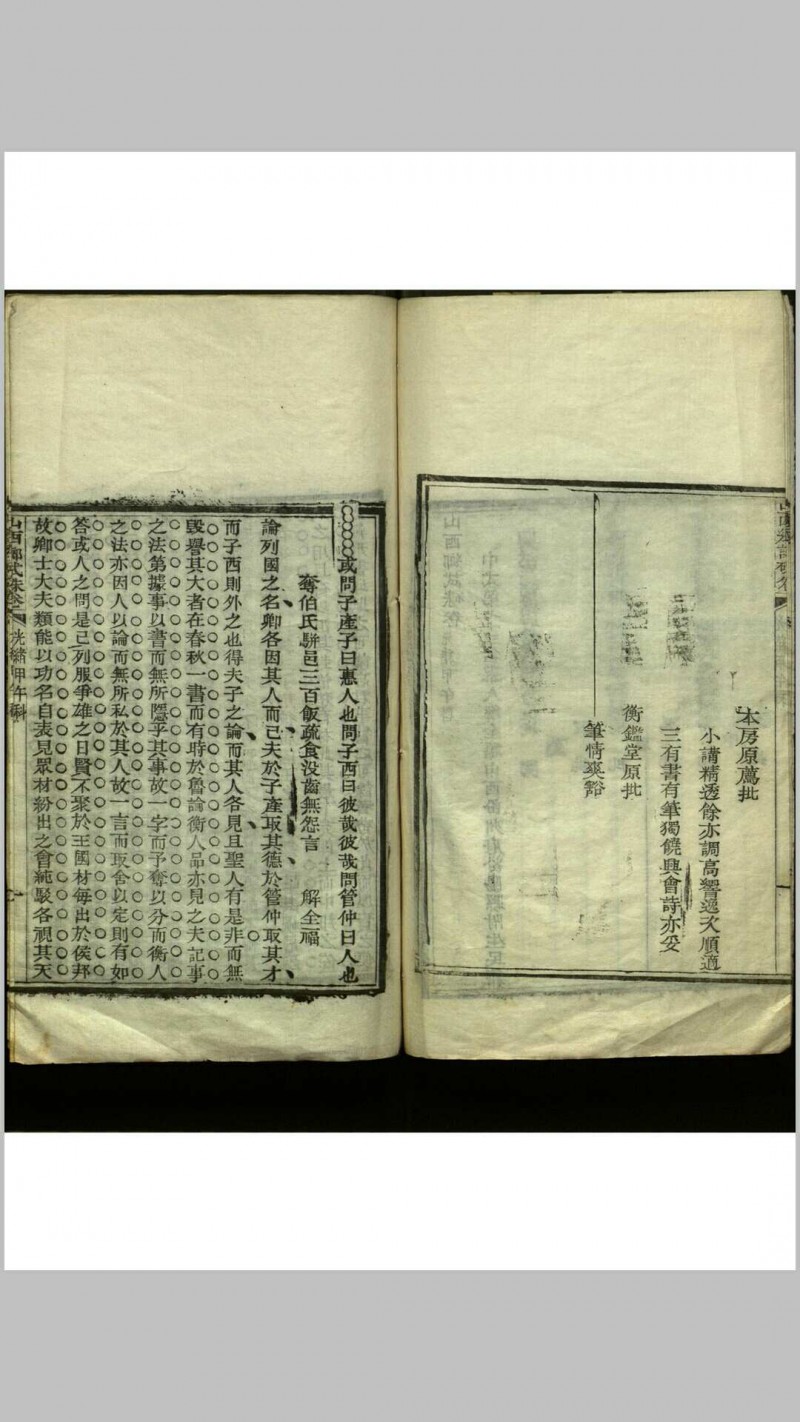 本房原薦批
小講精透餘亦調高響逸次順適
三有書有筆獨饒興會詩亦妥
衡鑑堂原批
筆情爽豁
或問子產子曰惠人也問子西曰彼哉彼哉問管仲曰人也
奪伯氏駢邑三百飯疏食没齒無怨言
解全福
論列國之名卿各因其人而已夫於子產取其德於管仲取其才
而子西則外之也得夫子之論而其人各見且聖人有是非而無
毀譽其大者在春秋一書而有時於魯論衡人品亦見之夫記事
之法第據事以書而無所隱乎其事故一字而予奪以分而衡人
之法亦因人以論而無所私於其人故一言而取舍以定則有如
答或人之問是已列服爭雄之日賢不聚於王國材每出於侯邦
故卿士大夫類能以功名自表見眾材紛出之會純駁各視其天
山西鄉試硃卷
光緒甲午科
一